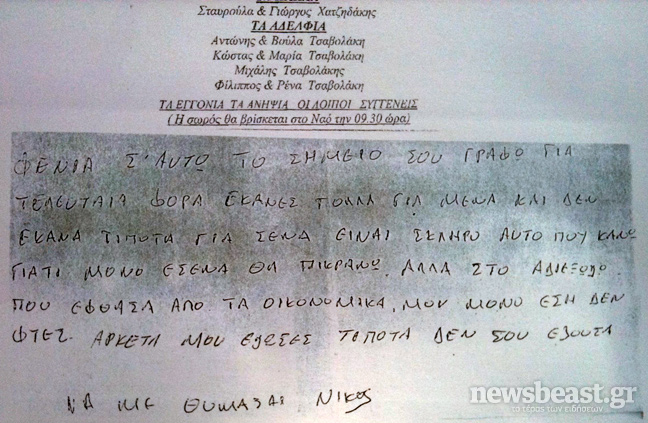 Σταυρούλα & Γιώργος Χατζηδάκης
ΤΑ ΑΔΕΛΦΙΑ
Αντώνης & Βούλα Τσαβολάκη
Κώστας & Μαρία Τσαβολάκη
Μιχάλης Τσαβολάκης
Φίλιππος & Ρένα Τσαβολάκη
ΤΑ ΕΓΓΟΝΙΑ ΤΑ ΑΝΗΨΙΑ ΟΙ ΛΟΙΠΟΙ ΣΥΓΓΕΝΕΙΣ
( Η σωρός θα βρίσκεται στο Ναό την 09.30 ώρα)
ΦΕΝΙΑ Σ'ΑΥΤΟ ΤΟ ΣΗΜΕΙΟ ΣΟΥ ΓΡΑΦΟ ΓΙΑ
ΤΕΛΕΥΤΑΙΑ ΦΟΡΑ ΕΚΑΝΕΣ ΠΟΛΛΑ ΓΙΑ ΜΕΝΑ ΚΑΙ ΔΕΝ
ΕΚΑΝΑ ΤΙΠΟΤΑ ΓΙΑ ΣΕΝΑ ΕΙΝΑΙ ΣΚΛΗΡΟ ΑΥΤΟ ΠΟΥ ΚΑΝΩ
ΓΙΑΤΙ ΜΟΝΟ ΕΣΕΝΑ ΘΑ ΠΙΚΡΑΝΩ. ΑΛΛΑ ΣΤΟ ΑΔΙΕΞΩΔΟ
ΠΟΥ ΕΦΘΑΣΑ ΑΠΟ ΤΑ ΟΙΚΟΝΟΜΙΚΑ, ΜΟΥ ΜΟΝΟ ΕΣΗ ΔΕΝ
ΦΤΕΣ. ΑΡΚΕΤΑ ΜΟΥ ΕΔΩΣΕΣ ΤΟΠΟΤΑ ΔΕΝ ΣΟΥ ΕΔΟΣΑ
ΝΑ ΜΕ ΘΥΜΑΣΑΙ. ΝΙΚΟΣ
newsbeast.gr
το τέρας των ειδήσεων